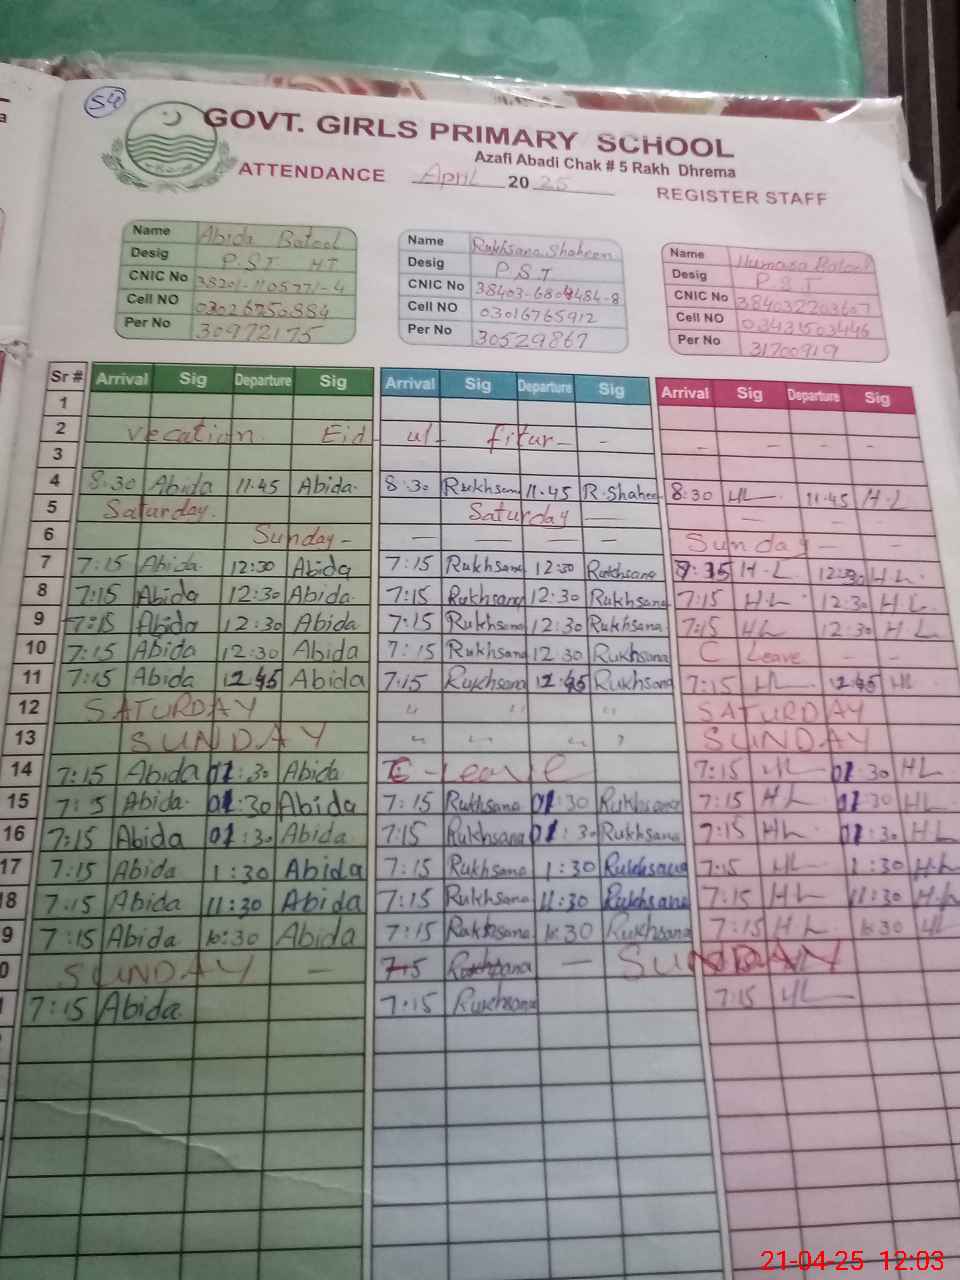 54
GOVT. GIRLS PRIMARY SCHOOL
Azafi Abadi Chak # 5 Rakh Dhrema
ATTENDANCE April 2025 REGISTER STAFF
Name Abida Batool
Desig P.S.T HT
CNIC No 38201-1105771-4
Cell NO 03026750884
Per No 30972175
Name Rukhsana Shaheen
Desig P.S.T
CNIC No 38403-6804484-8
Cell NO 03016765912
Per No 30529867
Name Humara Batool
Desig P.S.T
CNIC No 384032203607
Cell NO 03431503446
Per No 31700919
Sr # Arrival Sig Departure Sig Arrival Sig Departure Sig Arrival Sig Departure Sig
1
2 Vecation Eid - ul - fitur - - - - - -
3
4 8:30 Abida 11.45 Abida. 8:30 Rukhsana 11.45 R.Shaheen 8:30 HL 11.45 H.L
5 Saturday. Saturday — — — —
6 Sunday - — — — — Sunday — —
7 7:15 Abida. 12:30 Abida 7:15 Rukhsana 12:30 Rukhsana 7:15 H.L 12:30 H.L.
8 7:15 Abida 12:30 Abida. 7:15 Rukhsana 12:30 Rukhsana 7:15 H.L. 12:30 H.L.
9 7:15 Abida 12:30 Abida. 7:15 Rukhsana 12:30 Rukhsana 7:15 HL 12:30 H.L.
10 7:15 Abida 12:30 Abida 7:15 Rukhsana 12.30 Rukhsana C Leave - -
11 7:15 Abida 12.45 Abida 7:15 Rukhsana 12.45 Rukhsana 7:15 HL 12.45 HL
12 SATURDAY " " " SATURDAY
13 SUNDAY " " " " SUNDAY
14 7:15 Abida 01:30 Abida C-Leave 7:15 HL 01:30 HL
15 7:15 Abida. 01:30 Abida 7:15 Rukhsana 01:30 Rukhsana 7:15 HL 01:30 HL
16 7:15 Abida 01:30 Abida. 7:15 Rukhsana 01:30 Rukhsana 7:15 HL 01:30 HL
17 7:15 Abida 1:30 Abida 7:15 Rukhsana 1:30 Rukhsana 7:15 HL 1:30 H.L
18 7:15 Abida 11:30 Abida 7:15 Rukhsana 11:30 Rukhsana 7:15 HL 11:30 H.L
9 7:15 Abida 10:30 Abida 7:15 Rukhsana 10:30 Rukhsana 7:15 HL 10:30 HL
0 SUNDAY — 7:15 Rukhsana — SUNDAY
7:15 Abida 7:15 Rukhsana 7:15 HL
21-04-25 12:03